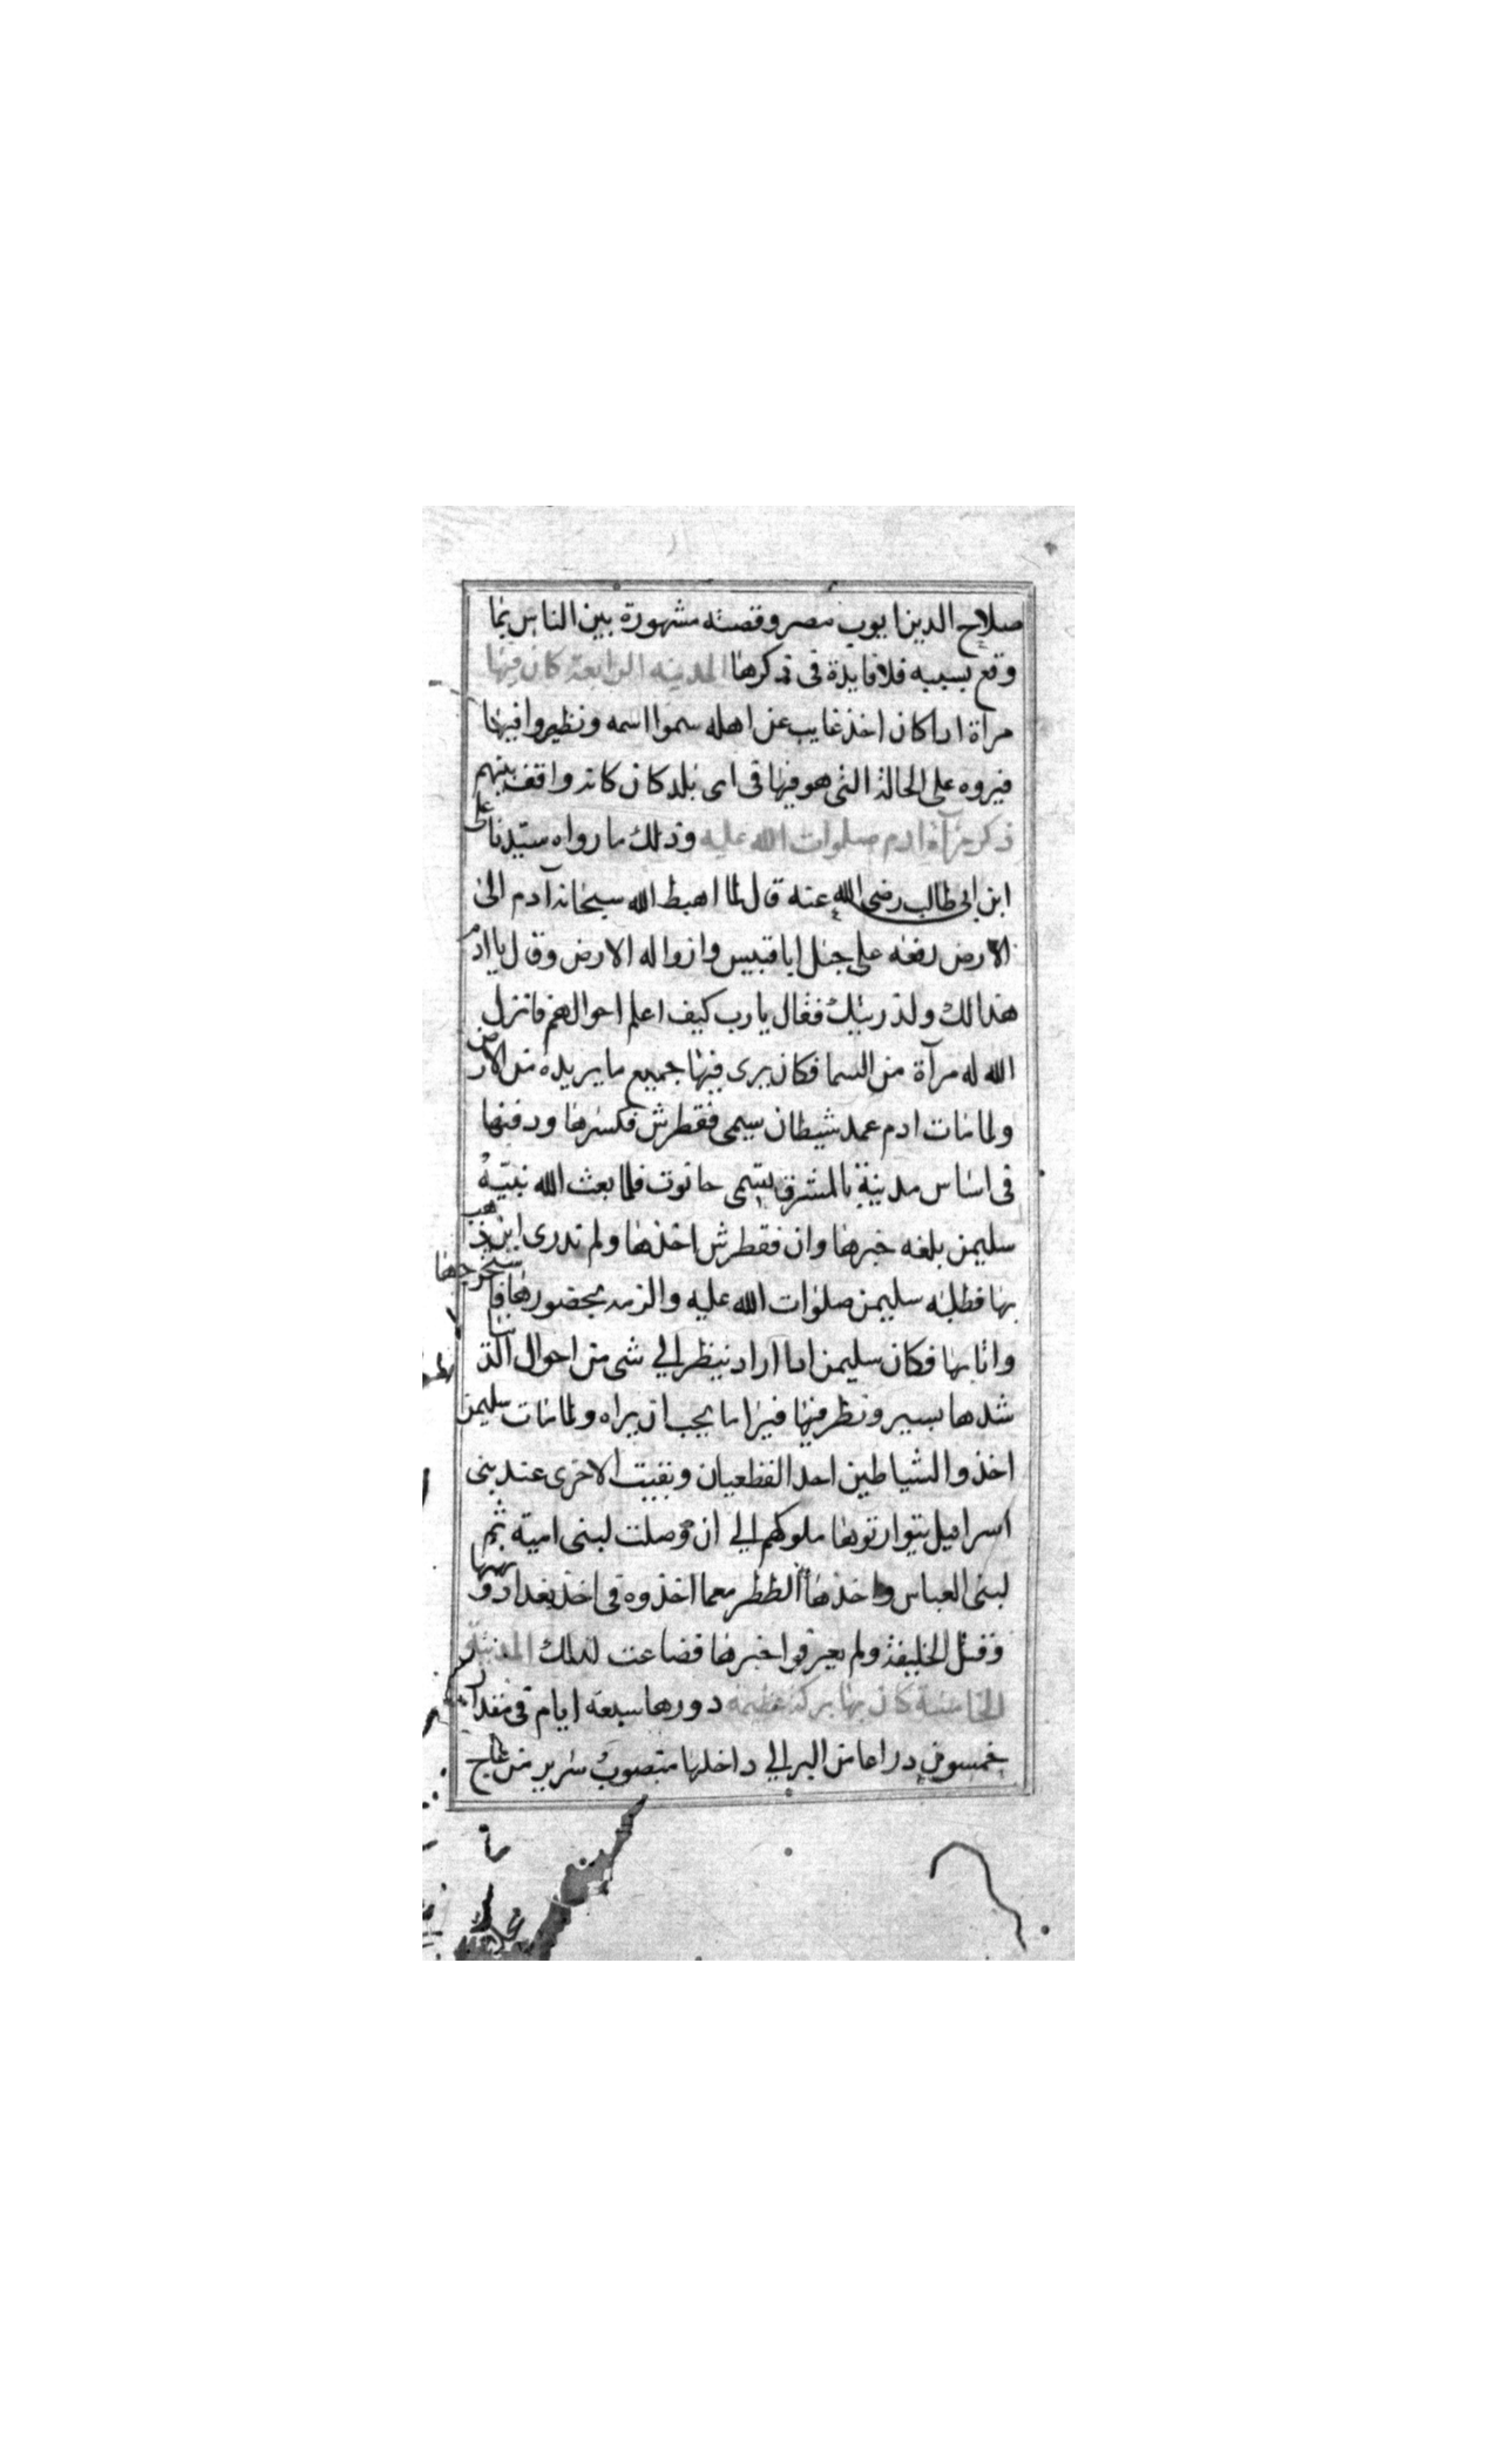 صلاح الدين ايوب مصر وقصته مشهورة بين الناس بما
وقع بسببه فلا فايدة فى ذكرها المدينه الرابعة كان فيها
مرآة اذا كان اخذ غايب عن اهله سموا اسمه ونظروا فيها
فيروه على الحالة التى هو فيها فى اى بلد كان كانه واقف بينهم
ذكر مرآة ادم صلوات الله عليه وذلك ما رواه سيدنا على
ابن ابى طالب رضى الله عنه قال لما اهبط الله سبحانه آدم الى
الارض رفعه على جبل ابا قبيس وازوا له الارض وقال يا ادم
هذا لك ولذريتك فقال يا رب كيف اعلم احوالهم فانزل
الله له مرآة من السما فكان يرى فيها جميع ما يريده من الارض
ولما مات ادم عمد شيطان يسمى فقطرش فكسرها ودفنها
فى اساس مدينة بالمشرق يسمى حانوت فلما بعث الله نبيه
سليمن بلغه خبرها وان فقطرش اخذها ولم تدرى اين ذهب
بها فطلبه سليمن صلوات الله عليه والزمه بحضورها فاستخرجها
واتا بها فكان سليمن اذا اراد ينظر الي شى من احوال الدنيا
شدها بسير ونظر فيها فيرا ما يحب ان يراه ولما مات سليمن
اخذوا الشياطين احد القطعيان وبقيت الاخرى عند بنى
اسراىيل يتوارثونها ملوكهم الي ان وصلت لبنى امية ثم
لبنى العباس واخذها الططر معما اخذوه فى اخذ بغداد ونهبها
وقتل الخليفة ولم يعرفوا خبرها فضاعت لذلك المدينة
الخامسة كان بها بركة عظيمة دورها سبعة ايام فى مقدار
خمسون دراعا من البر الي داخلها منصوب سرير من عاج